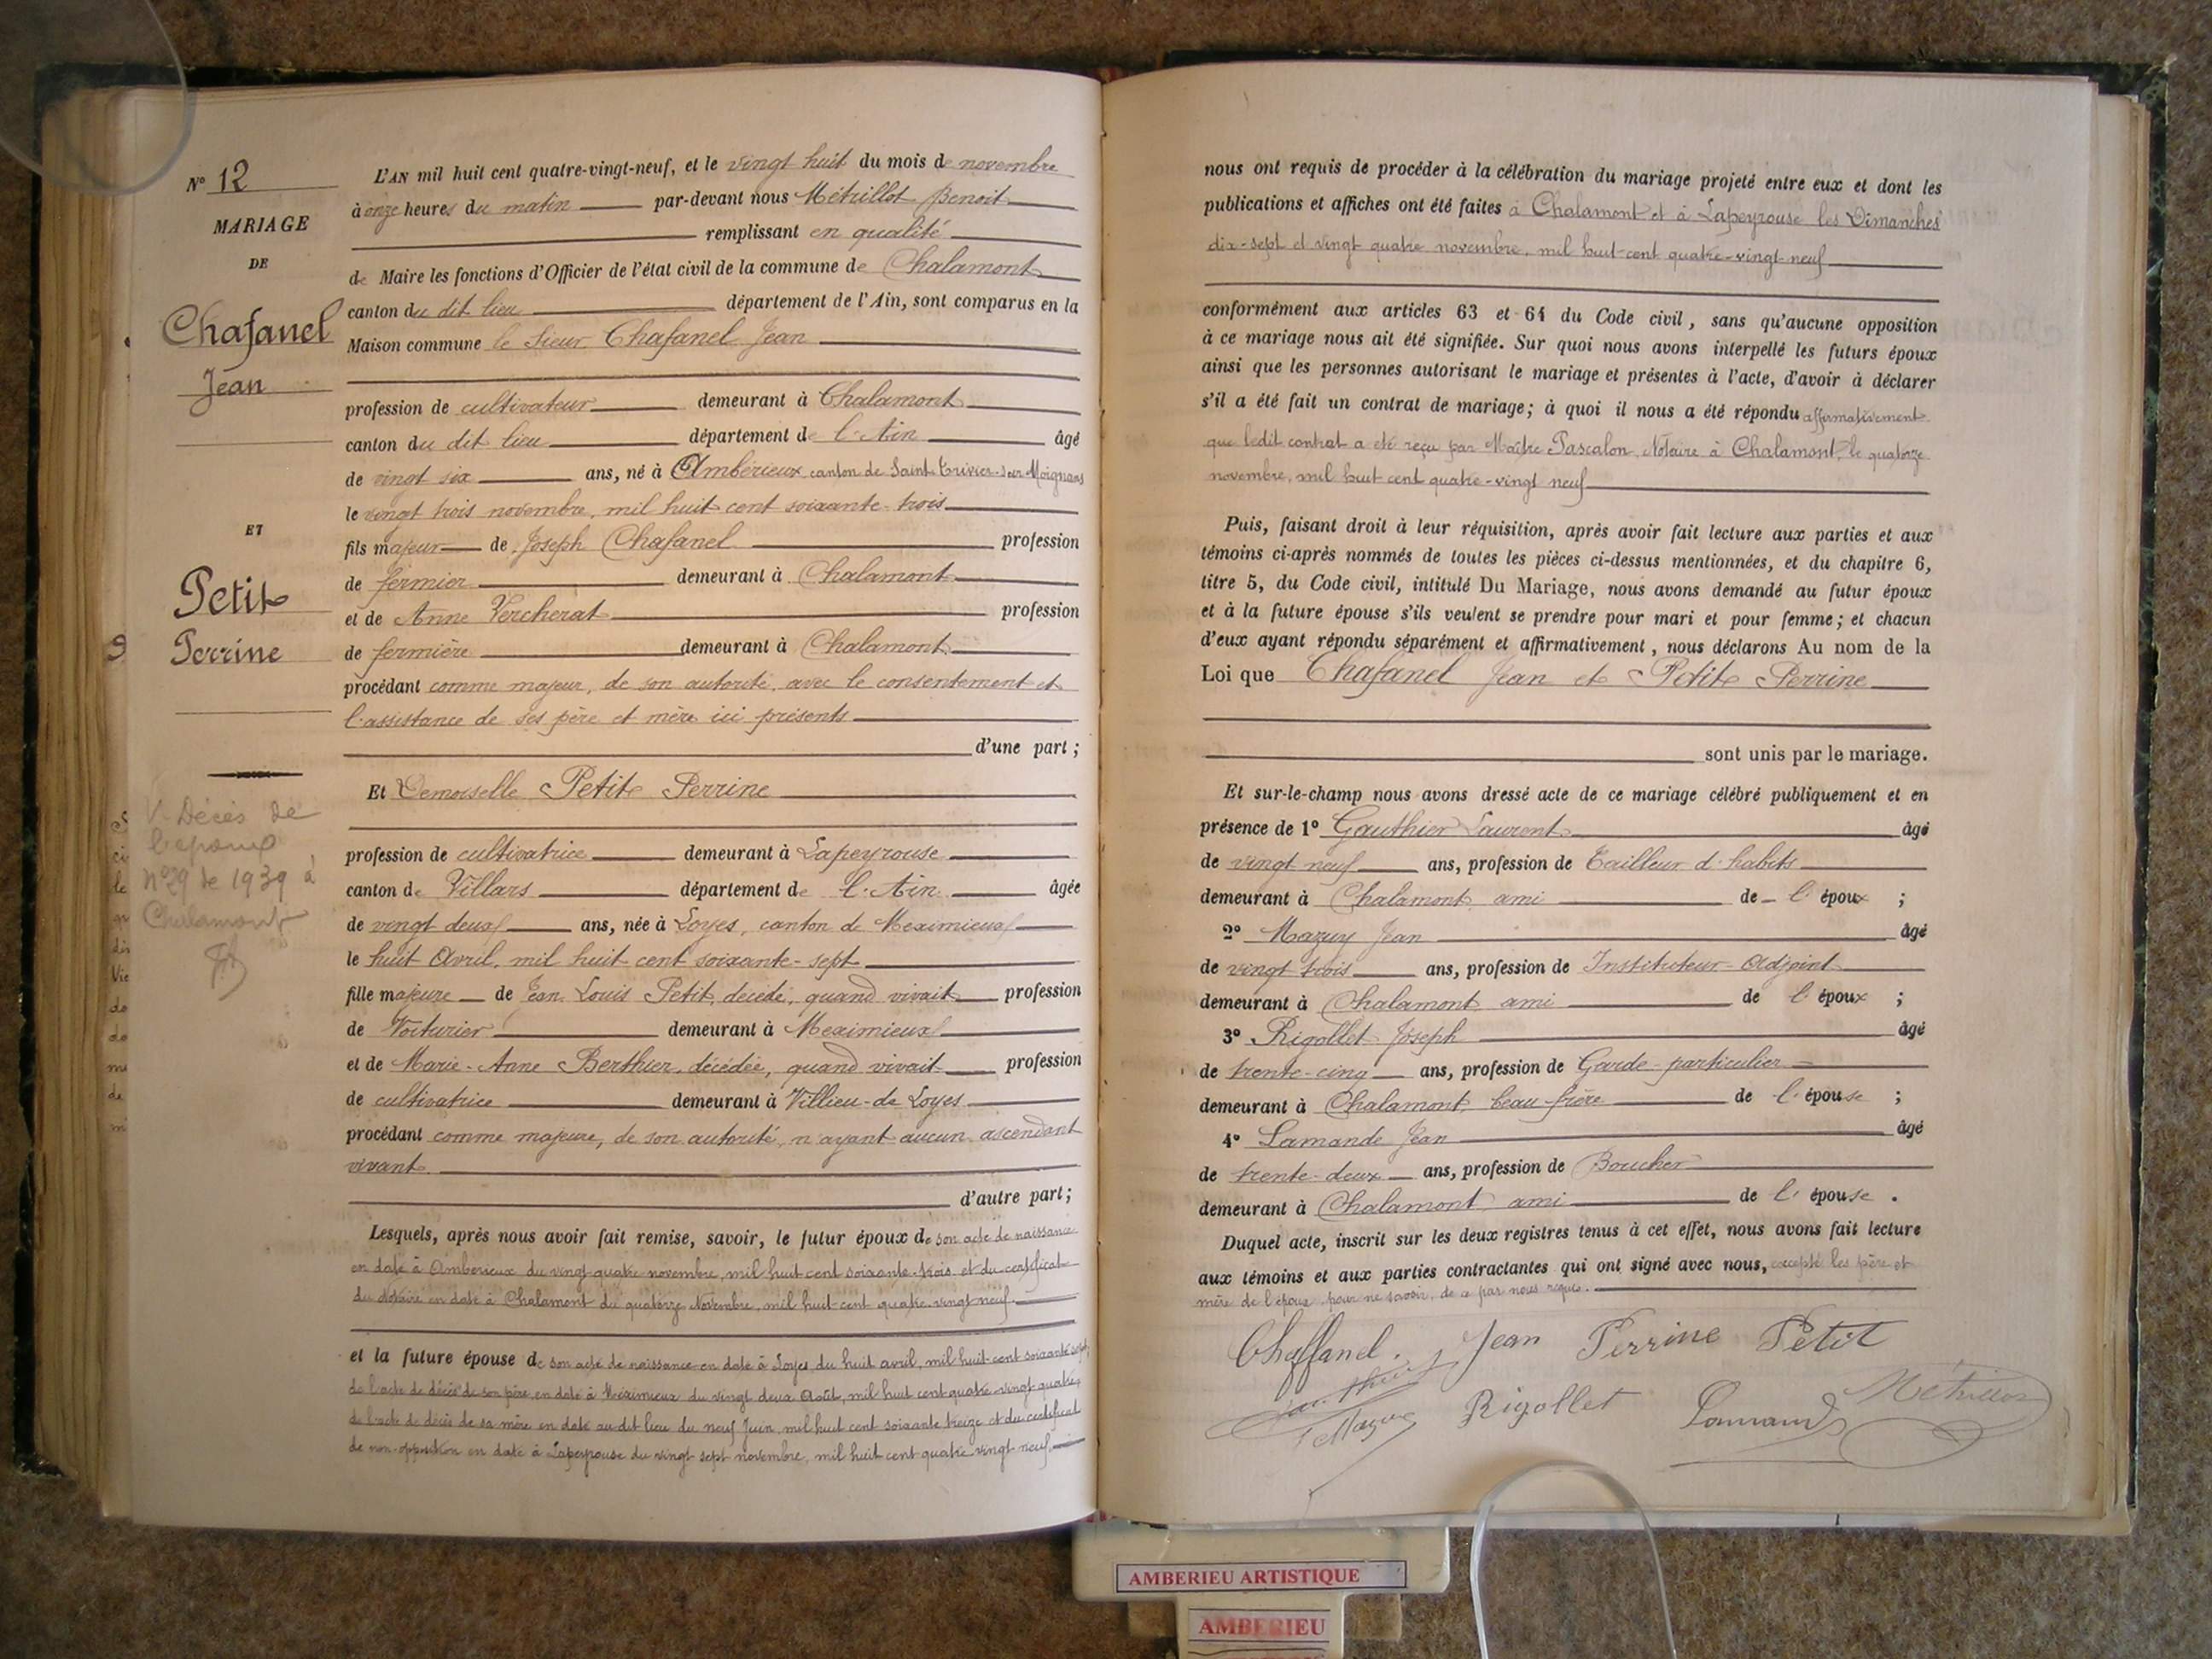 N° 12
MARIAGE
DE
Chafanel
Jean
ET
Petit
Perrine
V. Décès de
l'époux
n° 29 de 1939 à
Chalamont
L'AN mil huit cent quatre-vingt-neuf, et le vingt huit du mois de novembre
à onze heures du matin par-devant nous Métrillot Benoit
remplissant en qualité
de Maire les fonctions d'Officier de l'état civil de la commune de Chalamont
canton du dit lieu département de l'Ain, sont comparus en la
Maison commune le Sieur Chafanel Jean
profession de cultivateur demeurant à Chalamont
canton du dit lieu département de l'Ain âgé
de vingt six ans, né à Ambérieux canton de Saint-Trivier-sur-Moignans
le vingt trois novembre, mil huit cent soixante-trois
fils majeur de Joseph Chafanel profession
de fermier demeurant à Chalamont
et de Anne Vercherat profession
de fermière demeurant à Chalamont
procédant comme majeur, de son autorité, avec le consentement et
l'assistance de ses père et mère ici présents
d'une part ;
Et Demoiselle Petit Perrine
profession de cultivatrice demeurant à Lapeyrouse
canton de Villars département de l'Ain âgée
de vingt deux ans, née à Loyes, canton de Meximieux
le huit Avril, mil huit cent soixante-sept
fille majeure de Jean Louis Petit, décédé, quand vivait profession
de Voiturier demeurant à Meximieux
et de Marie-Anne Berthier, décédée, quand vivait profession
de cultivatrice demeurant à Villieu-de Loyes
procédant comme majeure, de son autorité, n'ayant aucun ascendant
vivant
d'autre part ;
Lesquels, après nous avoir fait remise, savoir, le futur époux de son acte de naissance
en date à Ambérieux du vingt quatre novembre, mil huit cent soixante-trois et du certificat
du Notaire en date à Chalamont du quatorze Novembre, mil huit-cent quatre-vingt neuf.
et la future épouse de son acte de naissance en date à Loyes du huit avril, mil huit-cent soixante sept,
de l'acte de décès de son père en date à Meximieux du vingt deux Août, mil huit cent quatre vingt quatre,
de l'acte de décès de sa mère en date au dit lieu du neuf Juin, mil huit cent soixante treize et du certificat
de non-opposition en date à Lapeyrouse du vingt sept novembre, mil huit cent quatre vingt neuf.
nous ont requis de procéder à la célébration du mariage projeté entre eux et dont les
publications et affiches ont été faites à Chalamont et à Lapeyrouse les Dimanches
dix-sept et vingt quatre novembre, mil huit-cent quatre-vingt-neuf
conformément aux articles 63 et 64 du Code civil, sans qu'aucune opposition
à ce mariage nous ait été signifiée. Sur quoi nous avons interpellé les futurs époux
ainsi que les personnes autorisant le mariage et présentes à l'acte, d'avoir à déclarer
s'il a été fait un contrat de mariage ; à quoi il nous a été répondu affirmativement
que ledit contrat a été reçu par Maître Pascalon, Notaire à Chalamont, le quatorze
novembre, mil huit cent quatre-vingt neuf
Puis, faisant droit à leur réquisition, après avoir fait lecture aux parties et aux
témoins ci-après nommés de toutes les pièces ci-dessus mentionnées, et du chapitre 6,
titre 5, du Code civil, intitulé Du Mariage, nous avons demandé au futur époux
et à la future épouse s'ils veulent se prendre pour mari et pour femme ; et chacun
d'eux ayant répondu séparément et affirmativement, nous déclarons Au nom de la
Loi que Chafanel Jean et Petit Perrine
sont unis par le mariage.
Et sur-le-champ nous avons dressé acte de ce mariage célébré publiquement et en
présence de 1° Gauthier Laurent âgé
de vingt neuf ans, profession de Tailleur d'habits
demeurant à Chalamont ami de l'époux ;
2° Mazuy Jean âgé
de vingt trois ans, profession de Instituteur-Adjoint
demeurant à Chalamont ami de l'époux ;
3° Rigollet Joseph âgé
de trente-cinq ans, profession de Garde-particulier
demeurant à Chalamont, beau-frère de l'épouse ;
4° Lamande Jean âgé
de trente-deux ans, profession de Boucher
demeurant à Chalamont ami de l'épouse.
Duquel acte, inscrit sur les deux registres tenus à cet effet, nous avons fait lecture
aux témoins et aux parties contractantes qui ont signé avec nous, excepté les père et
mère de l'époux pour ne savoir, de ce par nous requis.
Chaffanel. Jean Perrine Petit
Gauthier
Mazuy Rigollet Lamande Métrillot
AMBERIEU ARTISTIQUE
AMBERIEU